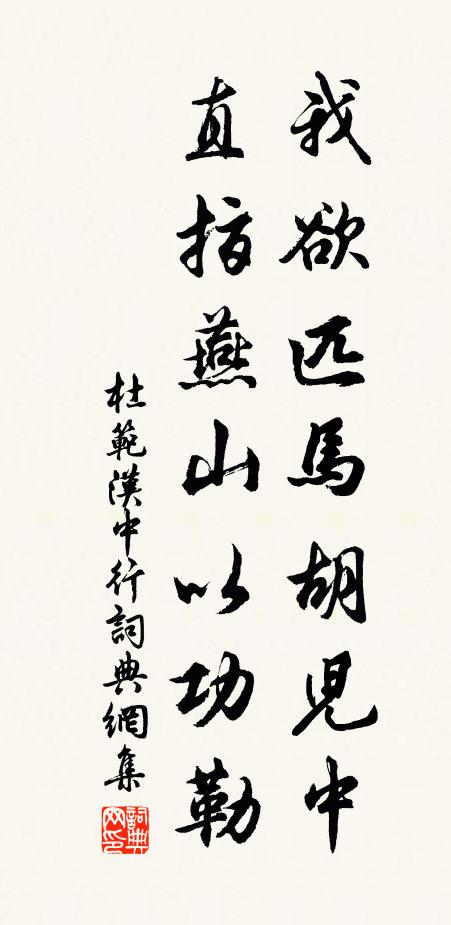 我欲匹馬胡兒中
直指燕山以功勒
杜範漢中行詞典網集
詞典網印